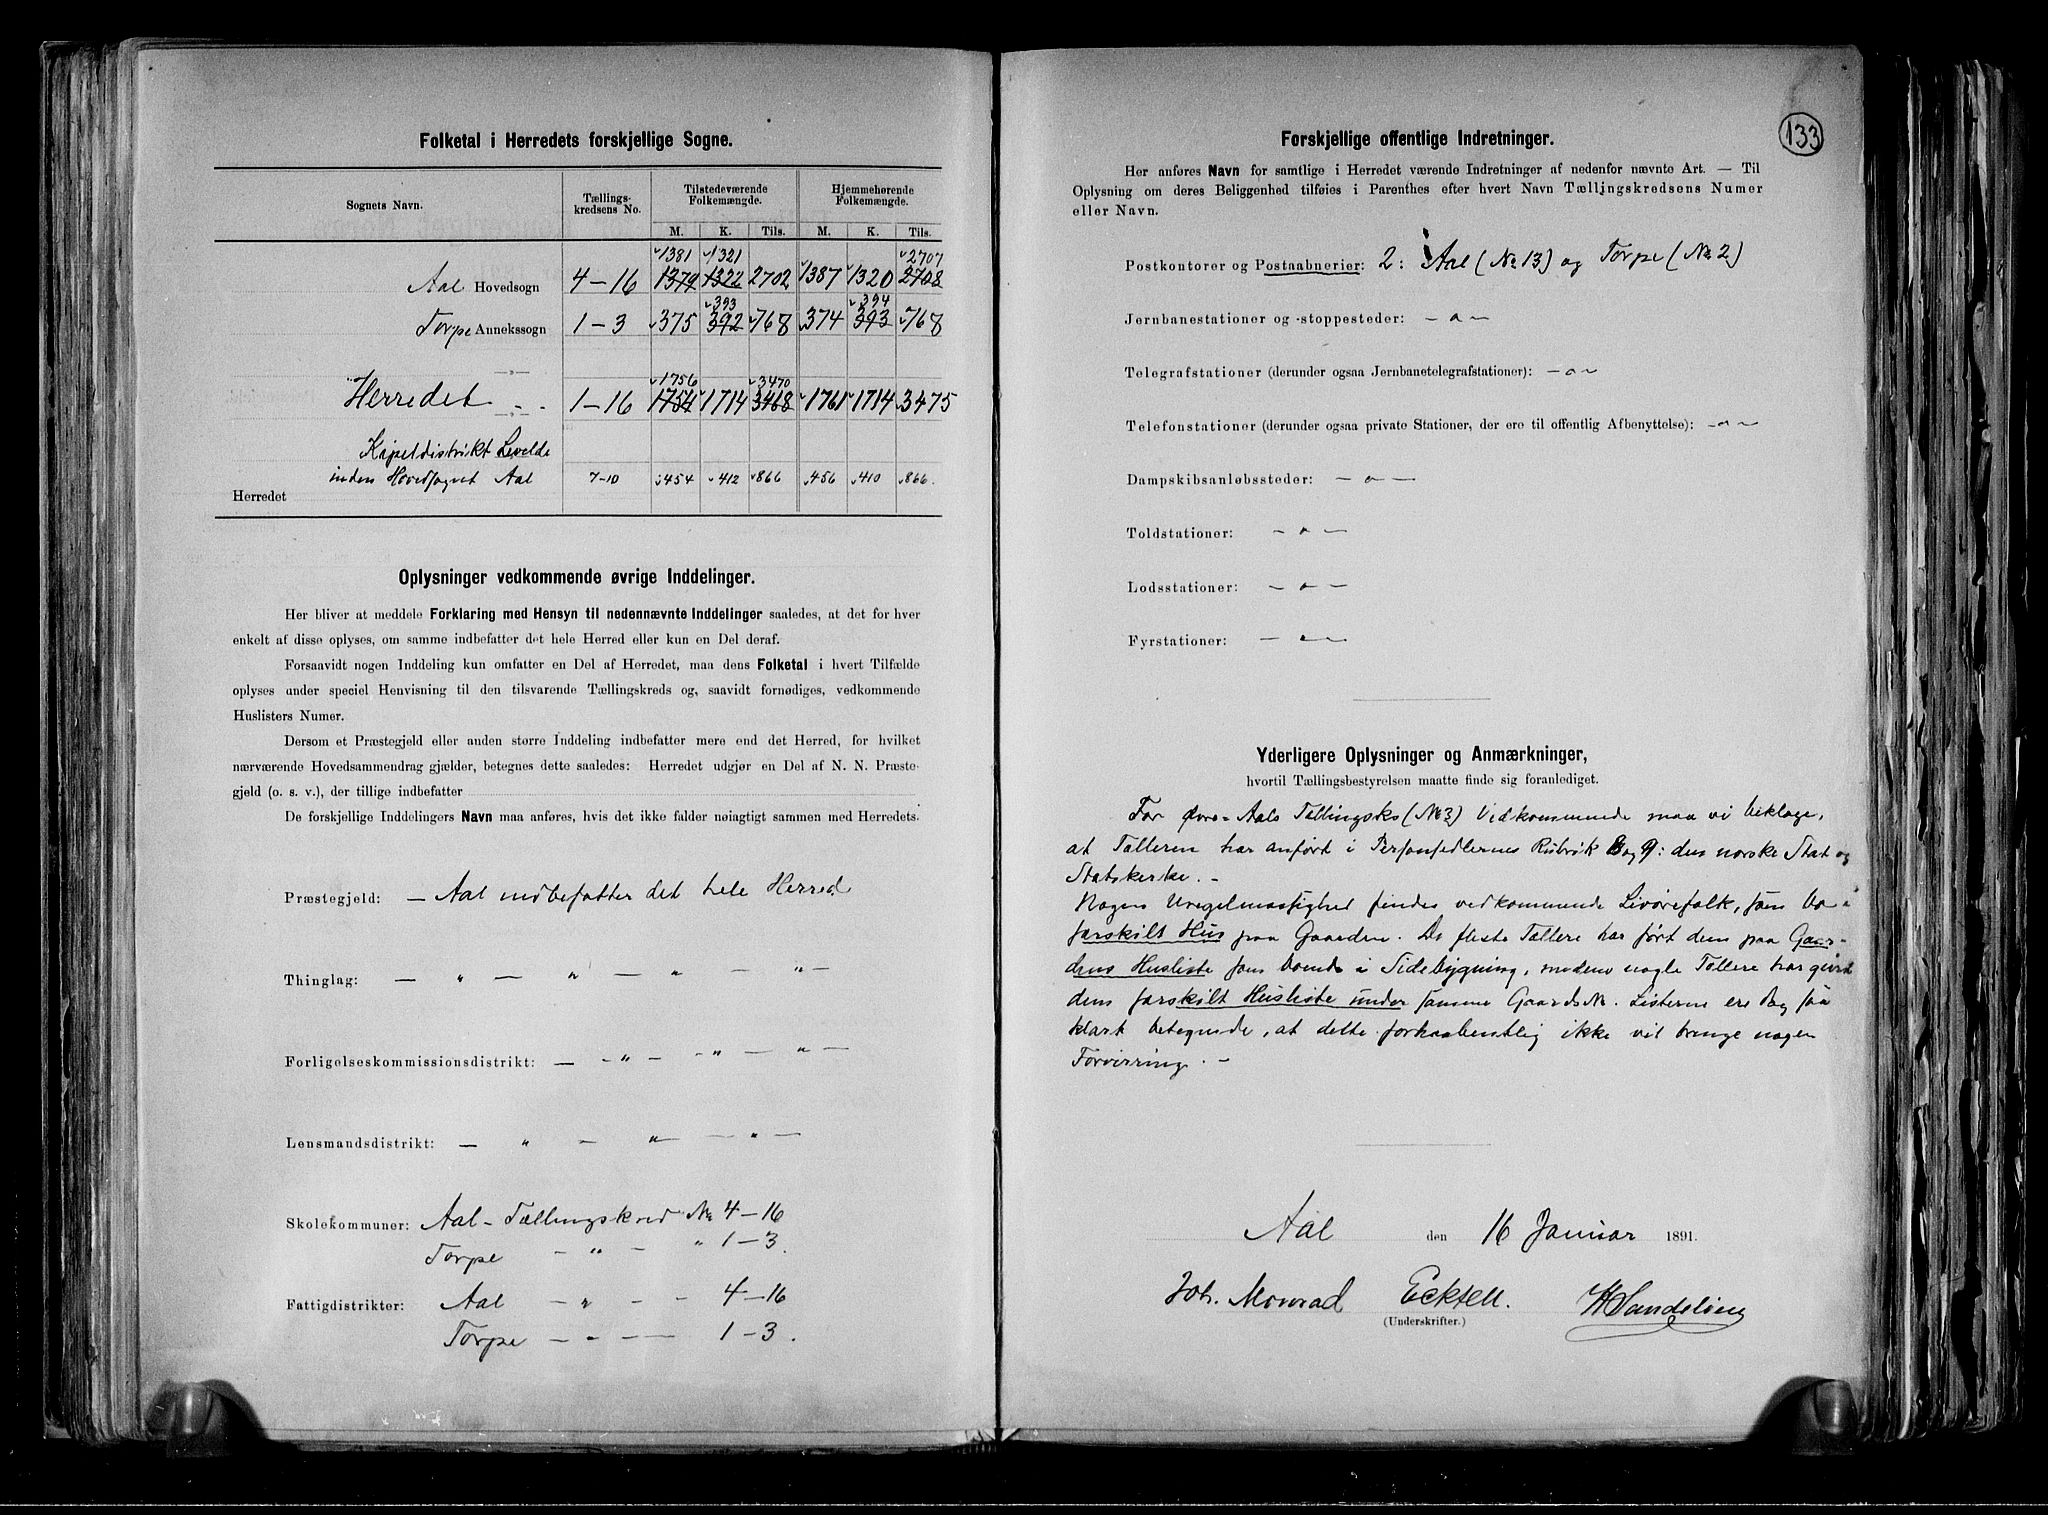 Folketal i Herredets forskjellige Sogne.
Sognets Navn. Tællingskredsens No. Tilstedeværende Folkemængde. Hjemmehørende Folkemængde.
M. K. Tils. M. K. Tils.
1381 1321 2707
Aal Hovedsogn 4-16 1379 1322 2702 1387 1320 2708
393 394
Torpe Annekssogn 1-3 375 392 768 374 393 768
1756 3470
Herredet 1-16 1754 1714 3468 1761 1714 3475
Kapeldistrikt Levelde
inden Hovedsognet Aal 7-10 454 412 866 456 410 866.
Herredet
Oplysninger vedkommende øvrige Inddelinger.
Her bliver at meddele Forklaring med Hensyn til nedennævnte Inddelinger saaledes, at det for hver
enkelt af disse oplyses, om samme indbefatter det hele Herred eller kun en Del deraf.
Forsaavidt nogen Inddeling kun omfatter en Del af Herredet, maa dens Folketal i hvert Tilfælde
oplyses under speciel Henvisning til den tilsvarende Tællingskreds og, saavidt fornødiges, vedkommende
Huslisters Numer.
Dersom et Præstegjeld eller anden større Inddeling indbefatter mere end det Herred, for hvilket
nærværende Hovedsammendrag gjælder, betegnes dette saaledes: Herredet udgjør en Del af N. N. Præste-
gjeld (o. s. v.), der tillige indbefatter
De forskjellige Inddelingers Navn maa anføres, hvis det ikke falder nøiagtigt sammen med Herredets.
Præstegjeld: — Aal indbefatter det hele Herred
Thinglag: — " — " — " — " —
Forligelseskommissionsdistrikt: — - " — - " — " —
Lensmandsdistrikt: — " — " — " —
Skolekommuner: Aal - Tællingskred No 4-16
Torpe - " - " 1-3.
Fattigdistrikter: Aal - " - - 4-16
Torpe — - — 1-3.
133
Forskjellige offentlige Indretninger.
Her anføres Navn for samtlige i Herredet værende Indretninger af nedenfor nævnte Art. — Til
Oplysning om deres Beliggenhed tilføies i Parenthes efter hvert Navn Tællingskredsens Numer
eller Navn.
Postkontorer og Postaabnerier: 2: Aal (No 13) og Torpe (No 2)
Jernbanestationer og -stoppesteder: - o -
Telegrafstationer (derunder ogsaa Jernbanetelegrafstationer): - o -
Telefonstationer (derunder ogsaa private Stationer, der ere til offentlig Afbenyttelse): - o -
Dampskibsanløbssteder: - o -
Toldstationer: - o -
Lodsstationer: - o -
Fyrstationer: - o -
Yderligere Oplysninger og Anmærkninger,
hvortil Tællingsbestyrelsen maatte finde sig foranlediget.
For Øvre-Aals Tællingsks (No 3) Vidkommende maa vi beklage,
at Tælleren har anført i Personsedlernes Rubrik 8 og 9: den norske Stat og
Statskirke. -
Nogen Uregelmæssighed findes vedkommende Livørefolk, som bo i
særskilt Hus paa Gaarden. De fleste Tællere har ført dem paa Gaar-
dens Husliste som boende i Sidebygning, medens nogle Tællere har givet
dem særskilt Husliste under samme GaardsNr. Listerne ere dog saa
klart betegnede, at dette forhaabentlig ikke vil bringe nogen
Forvirring. -
Aal den 16 Januar 1891.
Joh. Monrad Eckhell. H Sandelien
(Underskrifter.)